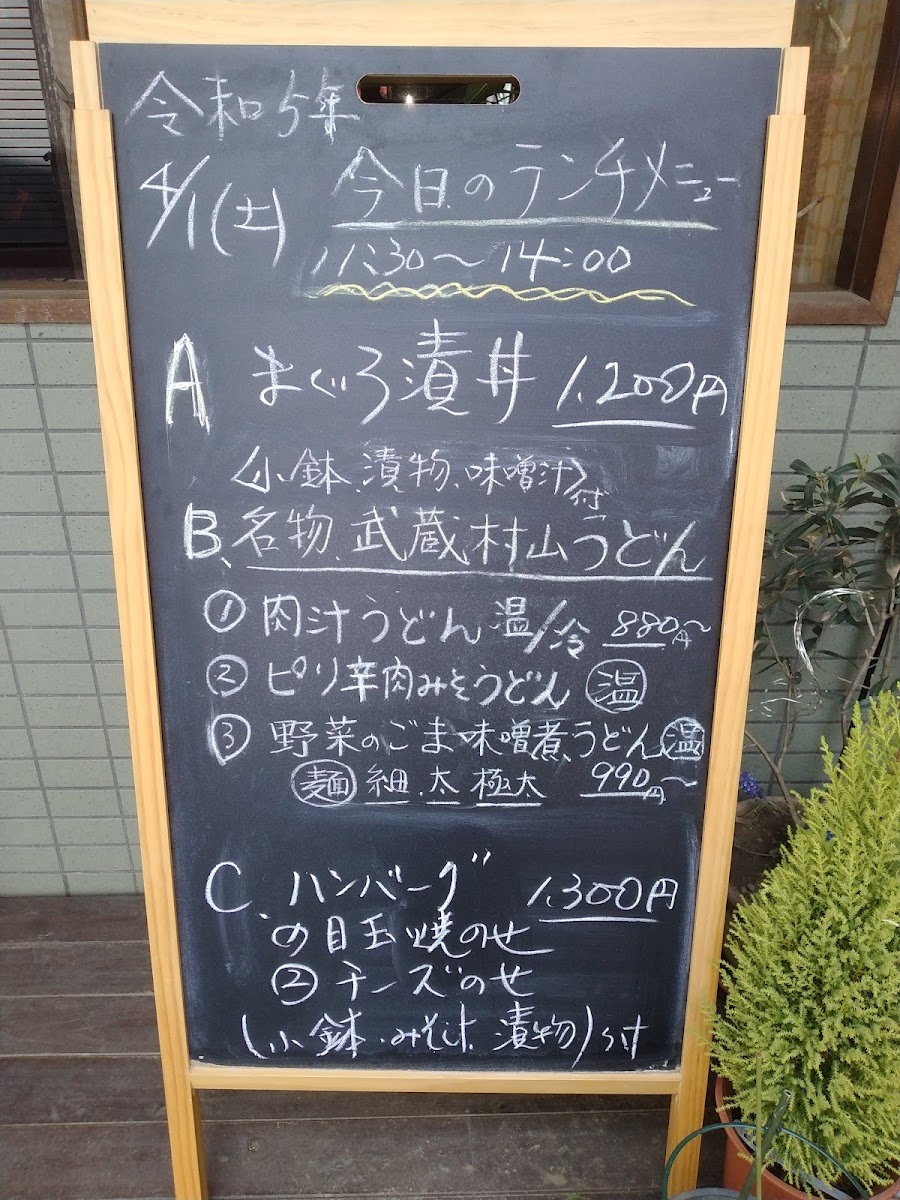 令和5年
4/1(土) 今日のランチメニュー
11:30〜14:00
A まぐろ漬丼 1,200円
〈小鉢、漬物、味噌汁〉付
B、名物、武蔵村山うどん
① 肉汁うどん 温/冷 880円〜
② ピリ辛肉みそうどん 温
③ 野菜のごま味噌煮うどん 温
麺 細、太 極太 990円〜
C、ハンバーグ 1,300円
の目玉焼のせ
② チーズのせ
(小鉢・みそ汁、漬物)付